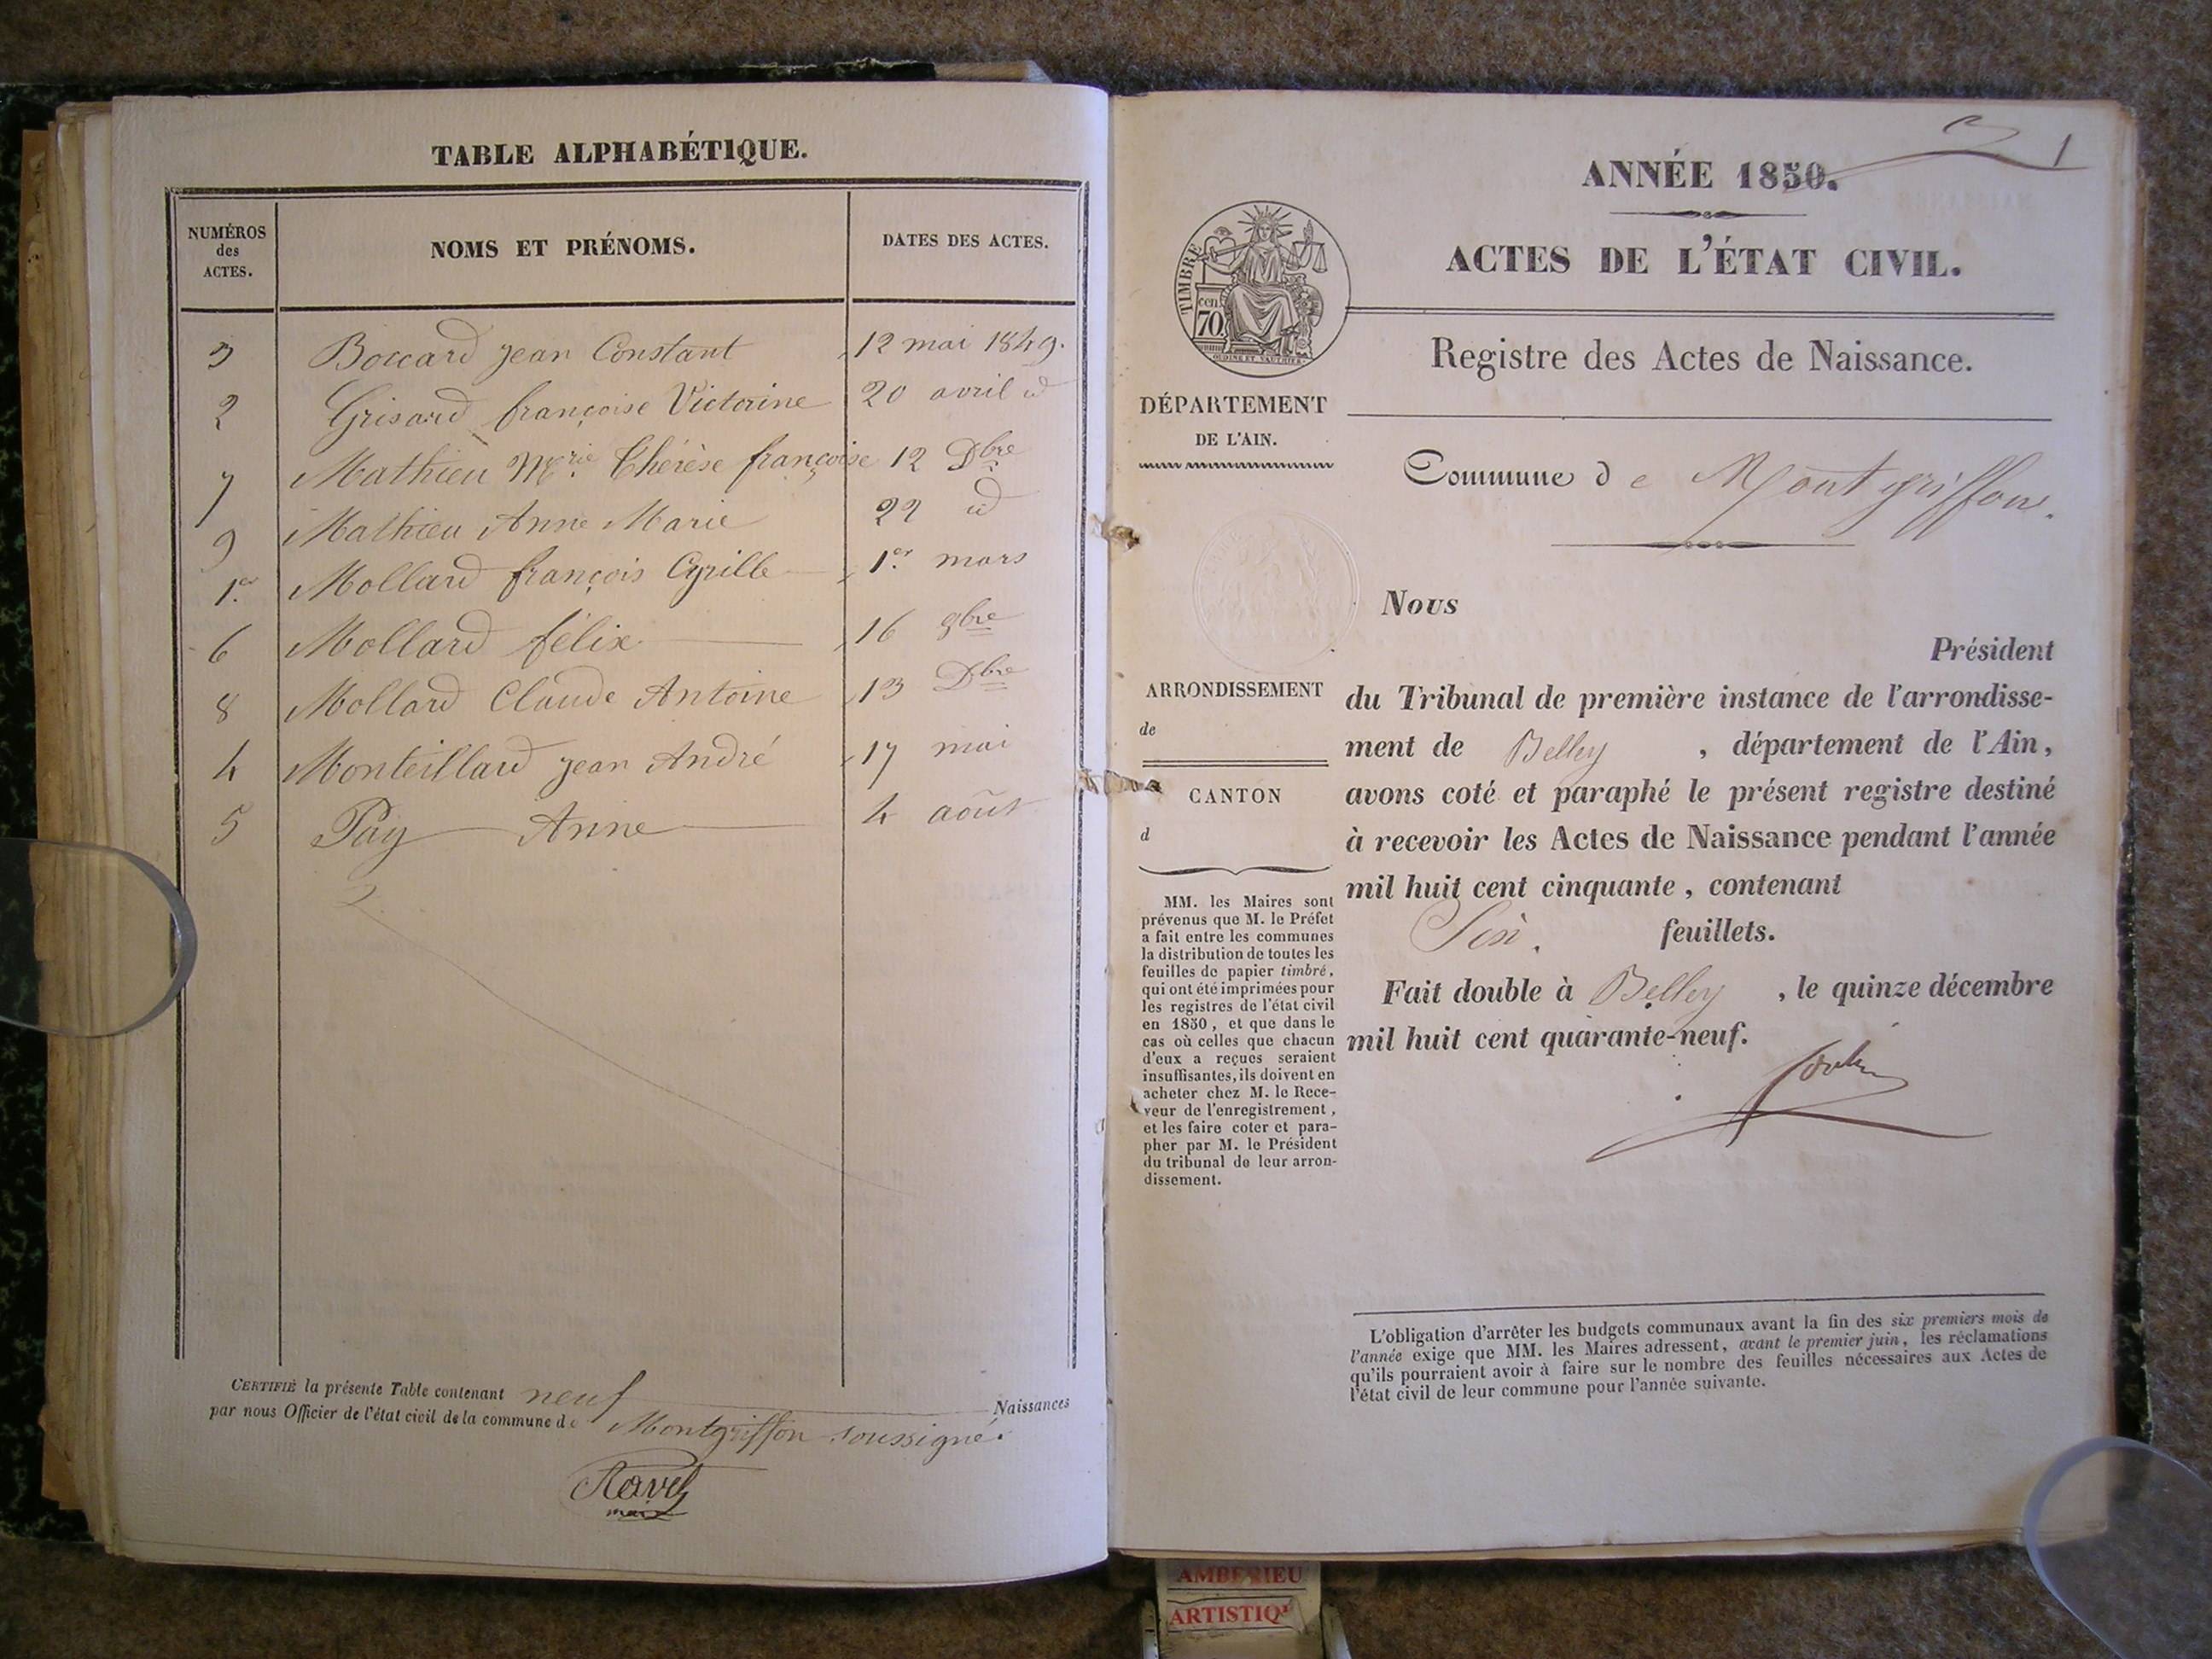 TABLE ALPHABÉTIQUE.
NUMÉROS des ACTES.
NOMS ET PRÉNOMS.
DATES DES ACTES.
3 Boccard jean Constant 12 mai 1849.
2 Grisard françoise Victorine 20 avril id
7 Mathieu Mrie Thérèse françoise 12 Dbre
9 Mathieu Anne Marie 22 id
1er Mollard françois Cyrille 1er mars
6 Mollard félix 16 9bre
8 Mollard Claude Antoine 13 Dbre
4 Monteillard jean André 17 mai
5 Pay Anne 4 août
CERTIFIÉ la présente Table contenant neuf Naissances
par nous Officier de l'état civil de la commune de Montgriffon soussigné.
Ravet
maire
1
ANNÉE 1850.
ACTES DE L'ÉTAT CIVIL.
TIMBRE
70 cen
OUDINÉ ET VAUTHIER
Registre des Actes de Naissance.
DÉPARTEMENT
DE L'AIN.
Commune de Montgriffon.
Nous
Président
du Tribunal de première instance de l'arrondisse-
ment de Belley , département de l'Ain,
avons coté et paraphé le présent registre destiné
à recevoir les Actes de Naissance pendant l'année
mil huit cent cinquante , contenant
Six. feuillets.
Fait double à Belley , le quinze décembre
mil huit cent quarante-neuf.
ARRONDISSEMENT
de
CANTON
d
MM. les Maires sont
prévenus que M. le Préfet
a fait entre les communes
la distribution de toutes les
feuilles de papier timbré,
qui ont été imprimées pour
les registres de l'état civil
en 1850, et que dans le
cas où celles que chacun
d'eux a reçues seraient
insuffisantes, ils doivent en
acheter chez M. le Rece-
veur de l'enregistrement,
et les faire coter et para-
pher par M. le Président
du tribunal de leur arron-
dissement.
L'obligation d'arrêter les budgets communaux avant la fin des six premiers mois de
l'année exige que MM. les Maires adressent, avant le premier juin, les réclamations
qu'ils pourraient avoir à faire sur le nombre des feuilles nécessaires aux Actes de
l'état civil de leur commune pour l'année suivante.
AMBERIEU
ARTISTIQ